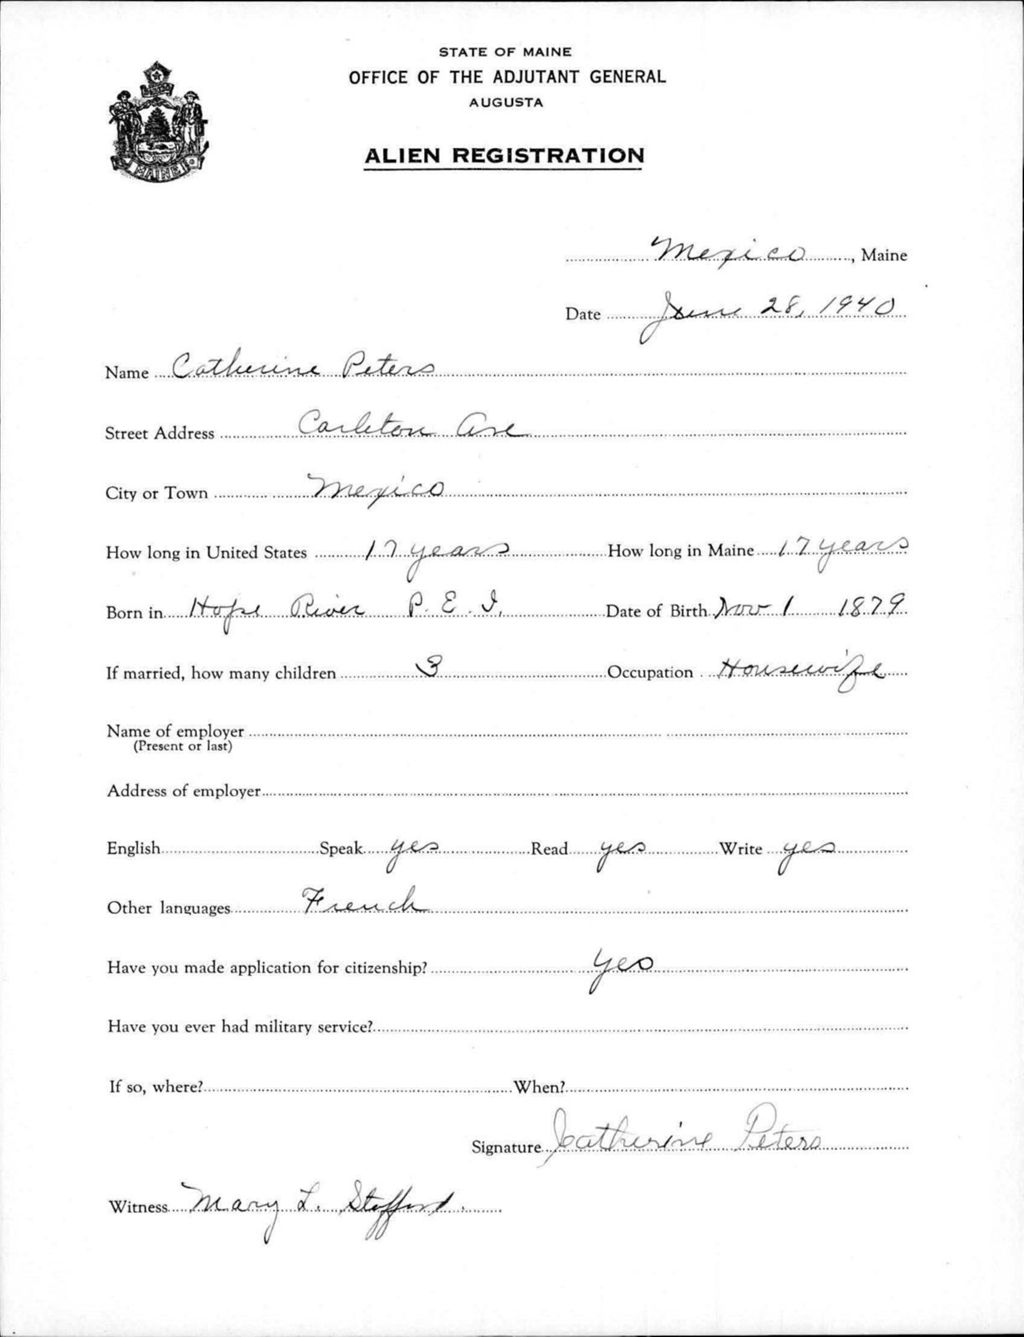 STATE OF MAINE
OFFICE OF THE ADJUTANT GENERAL
AUGUSTA
ALIEN REGISTRATION
MAINE
Mexico, Maine
Date June 28, 1940
Name Catherine Peters
Street Address Carleton Ave
City or Town Mexico
How long in United States 17 years How long in Maine 17 years
Born in Hope River P. E. I. Date of Birth Nov 1 1879
If married, how many children 3 Occupation Housewife
Name of employer
(Present or last)
Address of employer
English Speak yes Read yes Write yes
Other languages French
Have you made application for citizenship? yes
Have you ever had military service?
If so, where? When?
Signature Catherine Peters
Witness Mary L. Stofford.